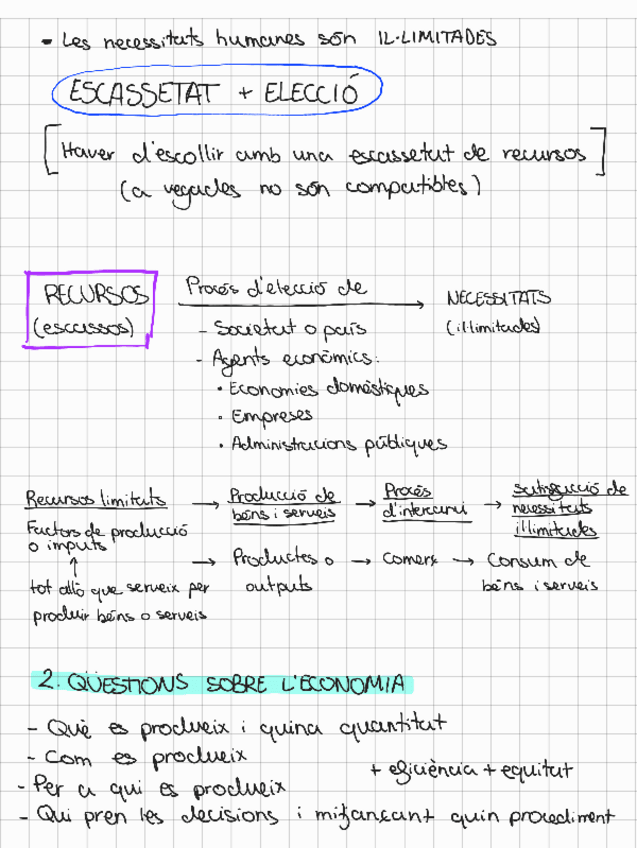 - Les necessitats humanes són IL·LIMITADES
ESCASSETAT + ELECCIÓ
[Haver d'escollir amb una escassetat de recursos]
(a vegades no són compatibles)
RECURSOS
(escassos)
Procés d'elecció de
NECESSITATS
(il·limitades)
- Societat o país
- Agents econòmics:
• Economies domèstiques
• Empreses
• Administracions públiques
Recursos limitats → Producció de béns i serveis → Procés d'intercanvi → Satisfacció de necessitats il·limitades
Factors de producció o imputs → Productes o outputs → Comerç → Consum de béns i serveis
↑
tot allò que serveix per
produir béns o serveis
2. QÜESTIONS SOBRE L'ECONOMIA
- Què es produeix i quina quantitat
- Com es produeix
+ eficiència + equitat
- Per a qui es produeix
- Qui pren les decisions i mitjançant quin procediment